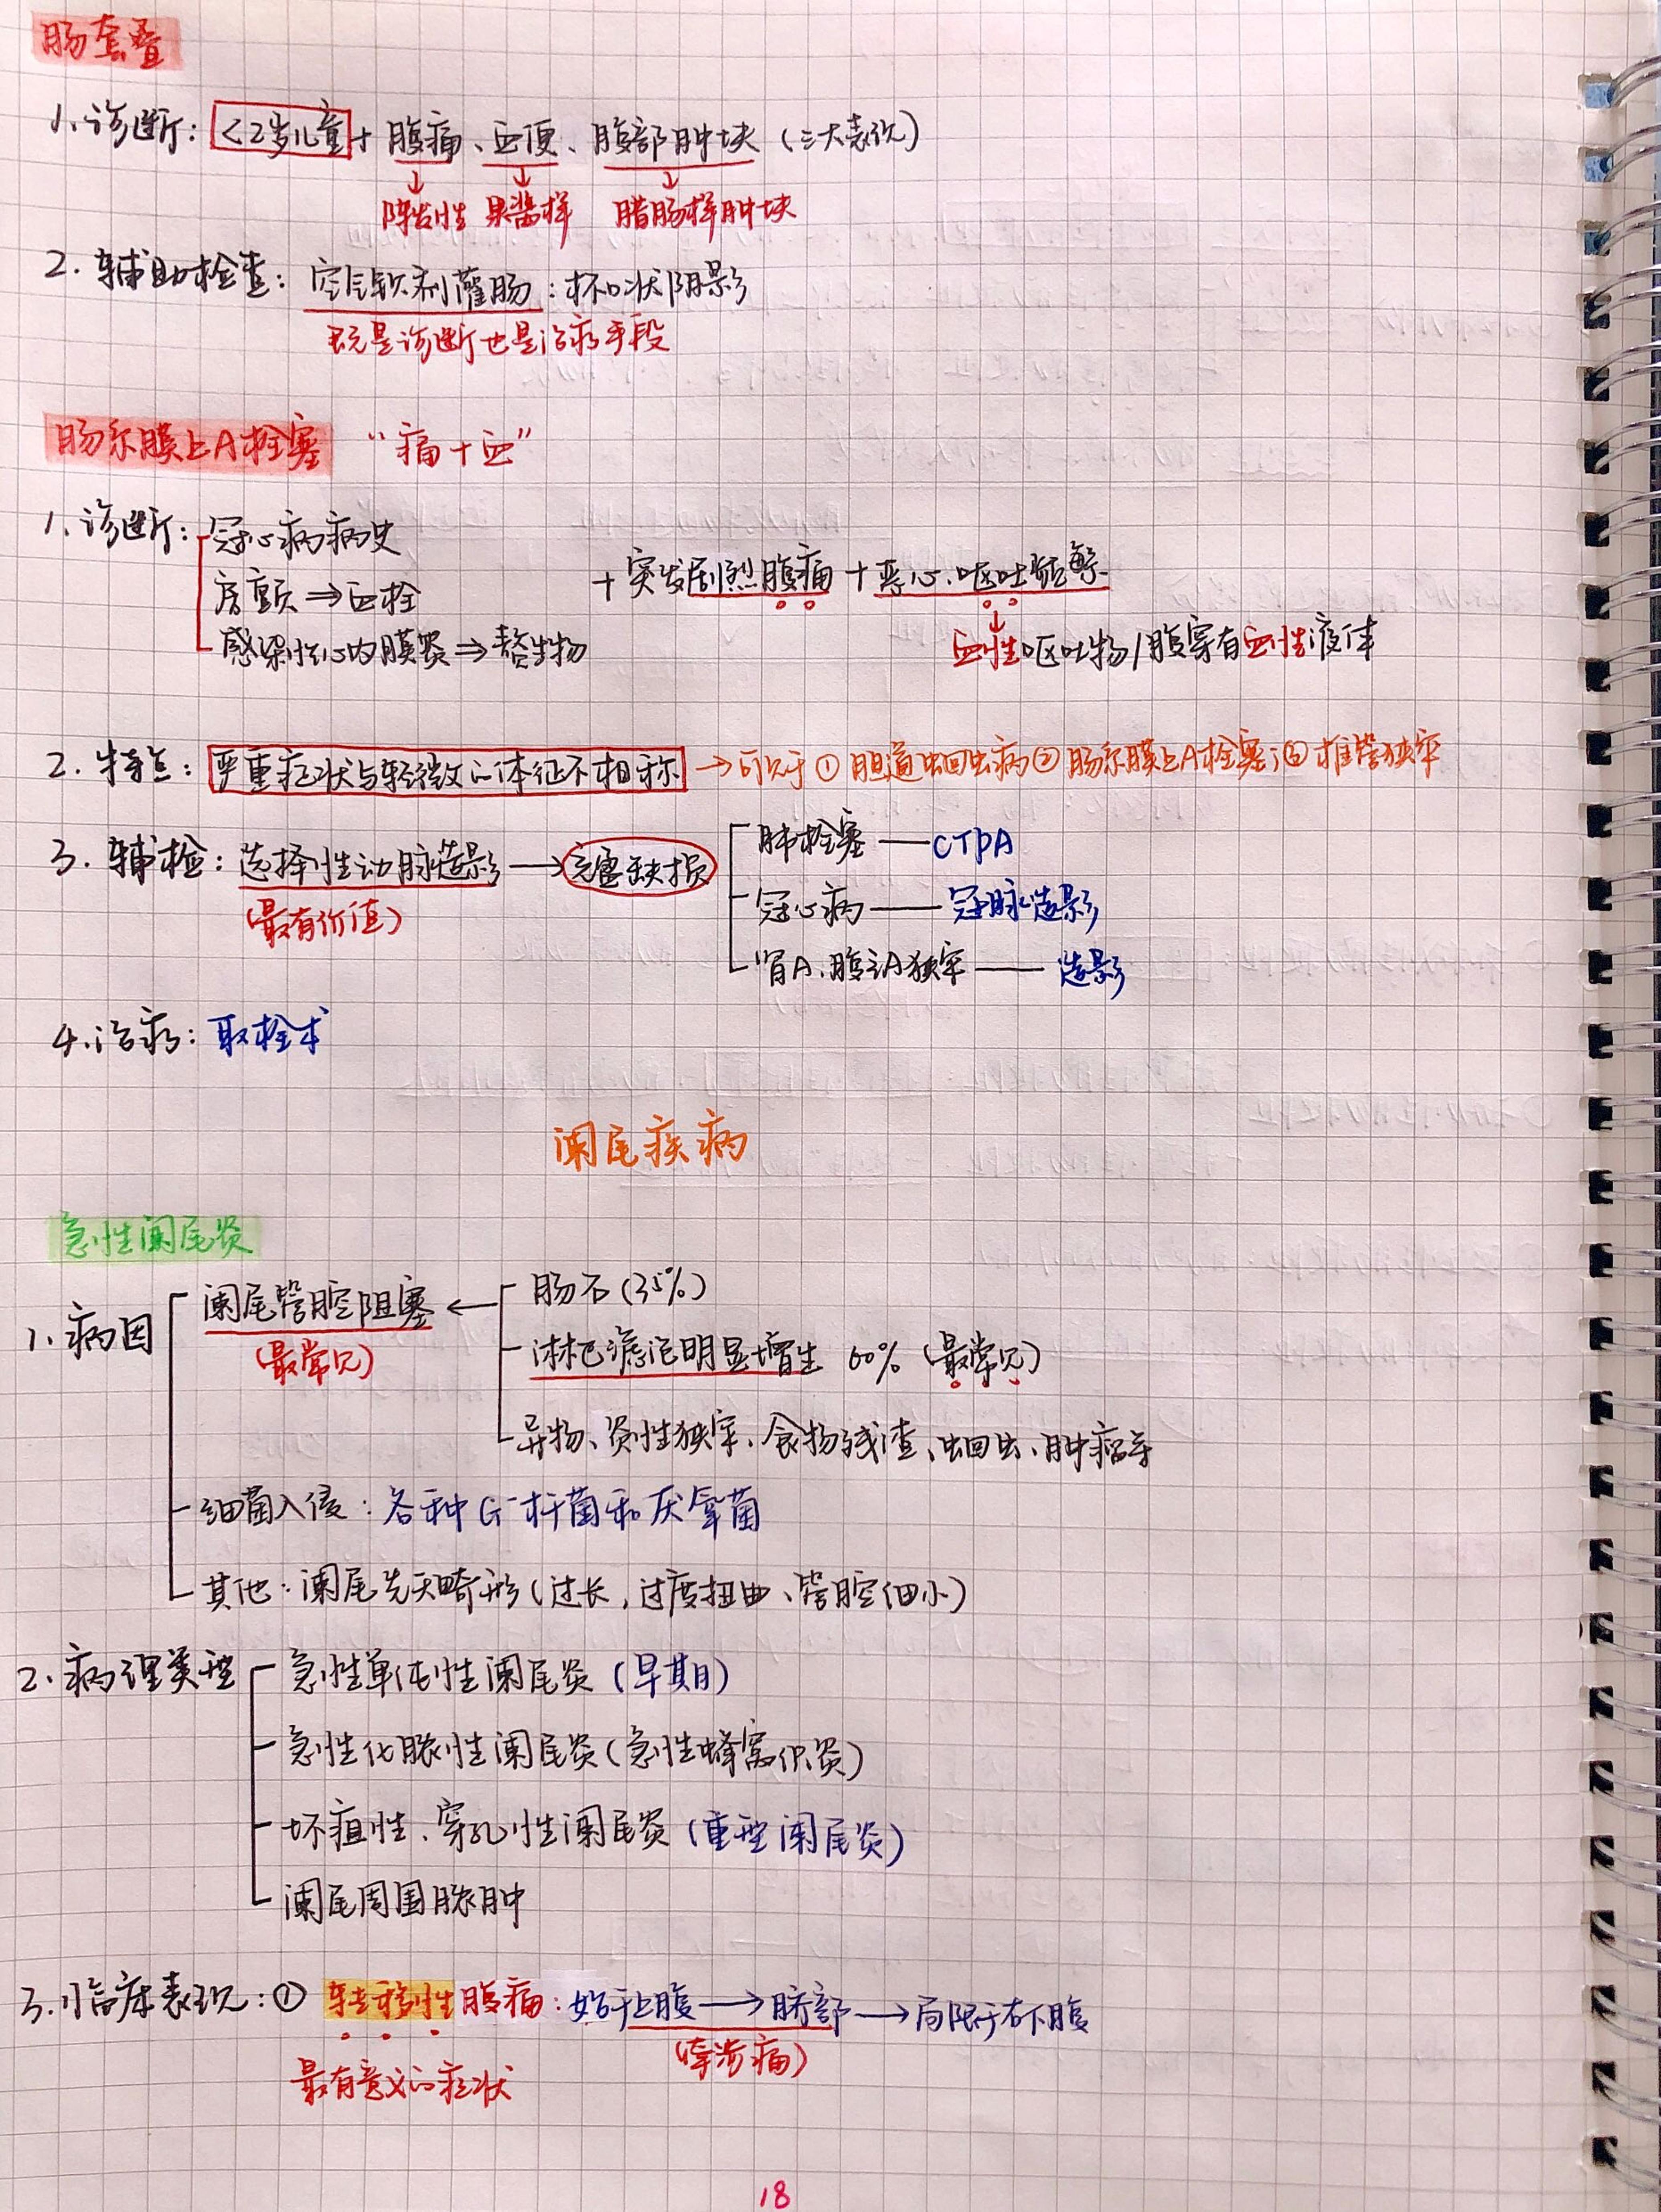 肠套叠
1. 诊断：<2岁儿童 + 腹痛、血便、腹部肿块（三大表现）
↓ ↓ ↓
阵发性 果酱样 腊肠样肿块
2. 辅助检查：空气钡剂灌肠：杯口状阴影
既是诊断也是治疗手段
肠系膜上A栓塞 “痛+血”
1. 诊断：冠心病病史
房颤⇒血栓 + 突发剧烈腹痛 + 恶心、呕吐频繁
↓
感染性心内膜炎⇒赘生物 血性呕吐物/腹穿有血性液体
2. 特点：严重症状与轻微的体征不相称 → 可见于 ①胆道蛔虫病 ②肠系膜上A栓塞 ③椎管狭窄
3. 辅检：选择性动脉造影 → 充盈缺损 肺栓塞——CTPA
（最有价值） 冠心病——冠脉造影
肾A、腹主A狭窄——造影
4. 治疗：取栓术
阑尾疾病
急性阑尾炎
1. 病因 阑尾管腔阻塞 ← 肠石（35%）
（最常见） 淋巴滤泡明显增生 60%（最常见）
异物、炎性狭窄、食物残渣、蛔虫、肿瘤等
细菌入侵：各种G⁻杆菌和厌氧菌
其他：阑尾先天畸形（过长，过度扭曲、管腔细小）
2. 病理类型 急性单纯性阑尾炎（早期）
急性化脓性阑尾炎（急性蜂窝织炎）
坏疽性、穿孔性阑尾炎（重型阑尾炎）
阑尾周围脓肿
3. 临床表现：① 转移性腹痛：始于上腹 → 脐部 → 局限于右下腹
（牵涉痛）
最有意义的症状
18